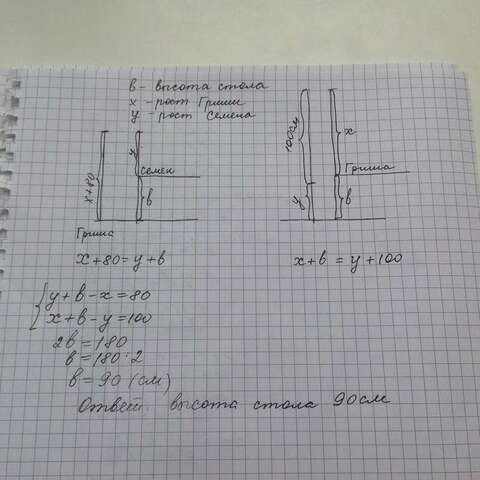 в - высота стола
x - рост Гриши
y - рост Семена
x+80
Семен
в
Гриша
100см
y
x
Гриша
в
x+80=y+в
x+в = y+100
y+в-x=80
x+в-y=100
2в=180
в=180:2
в=90 (см)
Ответ: высота стола 90см